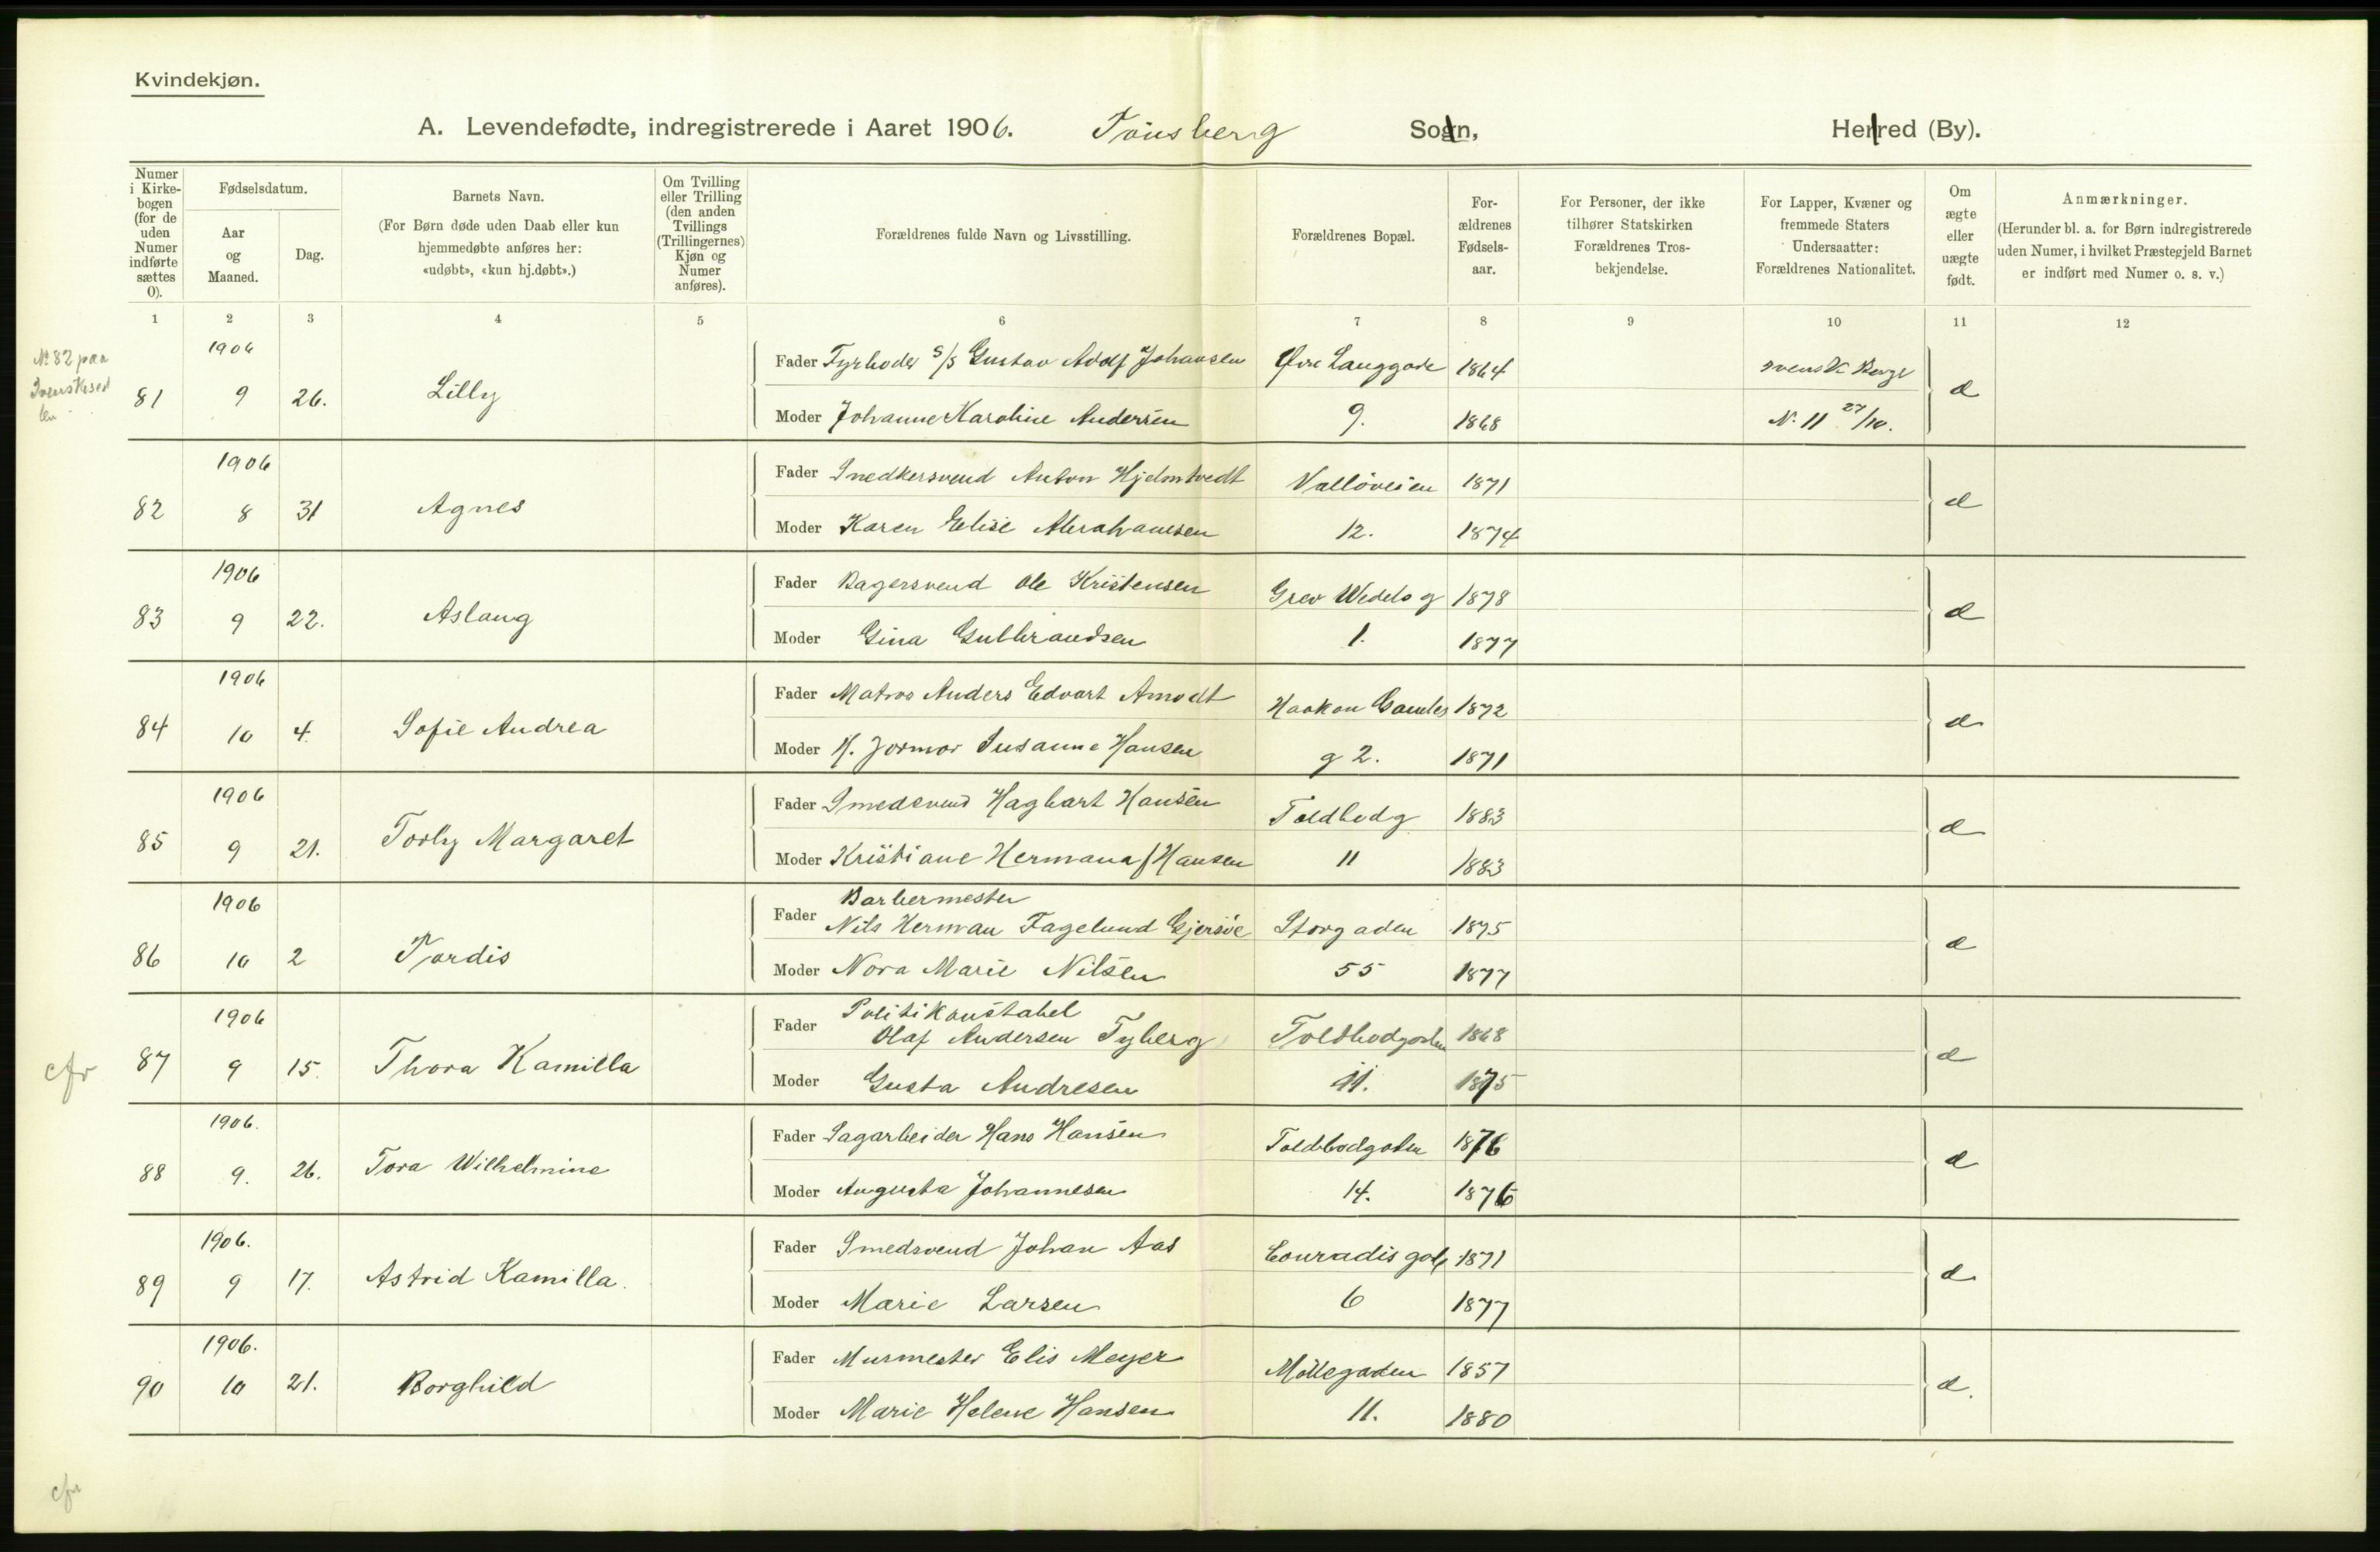 Kvindekjøn.
A. Levendefødte, indregistrerede i Aaret 1906. Tönsberg Sogn, Herred (By).
Numer i Kirke-bogen (for de uden Numer indførte sættes 0).
Fødselsdatum.
Aar og Maaned.
Dag.
Barnets Navn.
(For Børn døde uden Daab eller kun hjemmedøbte anføres her: «udøbt», «kun hj.døbt».)
Om Tvilling eller Trilling (den anden Tvillings (Trillingernes) Kjøn og Numer anføres).
Forældrenes fulde Navn og Livsstilling.
Forældrenes Bopæl.
For-ældrenes Fødsels-aar.
For Personer, der ikke tilhører Statskirken Forældrenes Tros-bekjendelse.
For Lapper, Kvæner og fremmede Staters Undersaatter: Forældrenes Nationalitet.
Om ægte eller uægte født.
Anmærkninger.
(Herunder bl. a. for Børn indregistrerede uden Numer, i hvilket Præstegjeld Barnet er indført med Numer o. s. v.)
1 2 3 4 5 6 7 8 9 10 11 12
№ 82 paa
1906
81 9 26. Lilly
Fader Fyrboder S/S Gustav Adolf Johansen Øvre Langgade 1864 svensk Borger
Moder Johanne Karoline Andersen 9. 1868 N. 11 27/10.
1906
82 8 31 Agnes
Fader Snedkersvend Anton Hjelmtvedt Vallöveien 1871
Moder Karen Elise Abrahamsen 12. 1874
1906
83 9 22. Aslaug
Fader Bagersvend Ole Kristensen Grev Wedels g 1878
Moder Gina Gulbrandsen 1. 1877
1906
84 10 4. Sofie Andrea
Fader Matros Anders Edvart Amodt Haakon Gamles 1872
Moder H. Susanne Hansen g 2. 1871
1906
85 9 21. Torly Margaret
Fader Smedsvend Hagbart Hansen Toldbodg 1883
Moder Kristiane Hermana f Hansen 11 1883
1906
86 10 2 Tordis
Barbermester
Fader Nils Herman Fagelund Gjersöe Storgaden 1875
Moder Nora Marie Nilsen 55 1877
1906
cfr 87 9 15 Thora Kamilla
Politikonstabel
Fader Olaf Andersen Tyberg Toldbodgaden 1868
Moder Gusta Andresen 11. 1875
1906.
88 9. 26. Tora Wilhelmine
Fader Sagarbeider Hans Hansen Toldbodgaden 1876
Moder Augusta Johannesen 14. 1876
1906.
89 9 17. Astrid Kamilla.
Fader Smedsvend Johan Aas Conradis gade 1871
Moder Marie Larsen 6 1877
1906.
90 10 21. Borghild
Fader Murmester Elis Meyer Möllegaden 1857
Moder Marie Helene Hansen 11. 1880
cfr